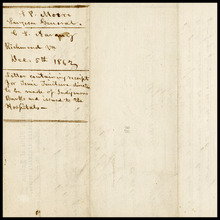 S. P. Moore
Surgeon General.
C. S. Army
Richmond Va
Dec. 5th 1862
Letter containing receipt
for Tonic Tincture directed
to be made of Indigenous
Barks and issued to the
Hospitals